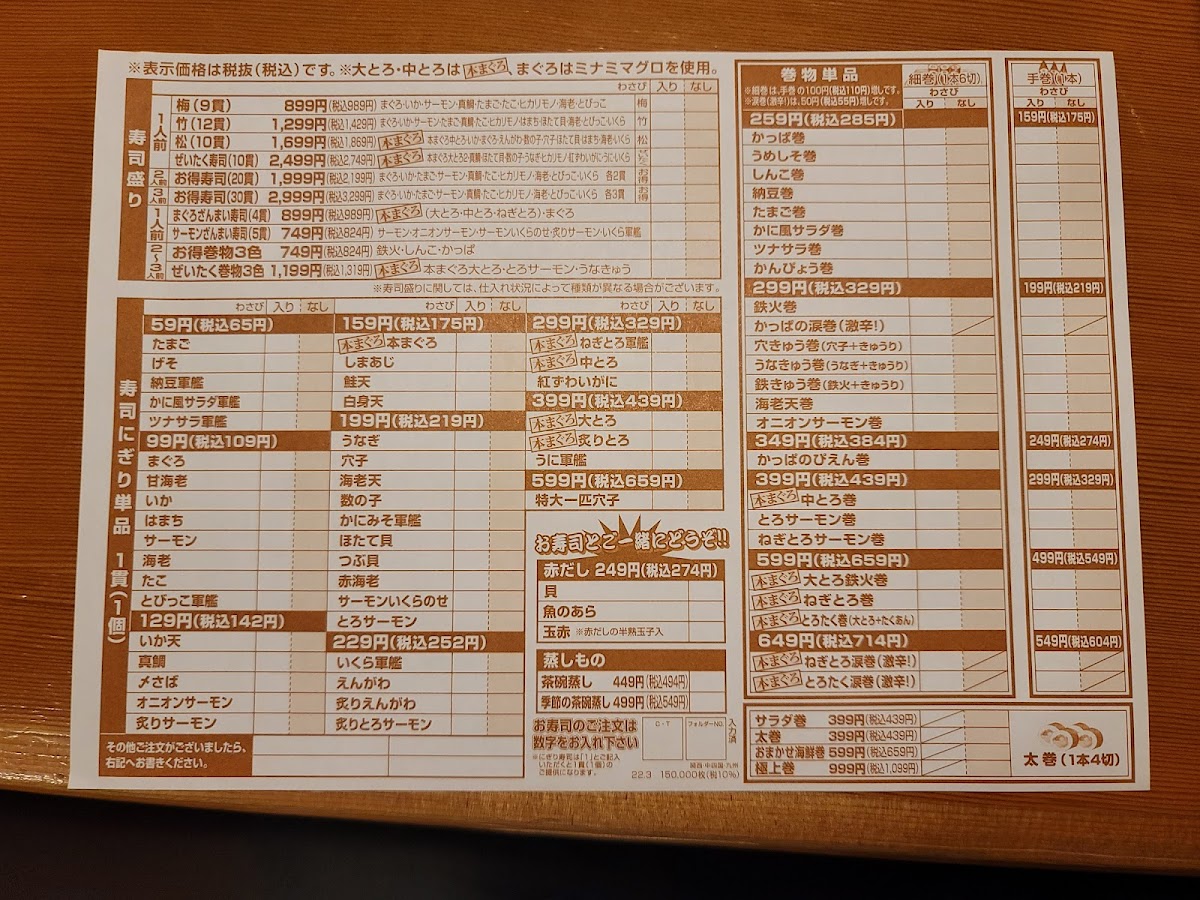 ※表示価格は税抜(税込)です。※大とろ・中とろは本まぐろ、まぐろはミナミマグロを使用。
寿司盛り
わさび 入り なし
1人前
梅(9貫) 899円(税込989円) まぐろ・いか・サーモン・真鯛・たまご・たこ・ヒカリモノ・海老・とびっこ 梅
竹(12貫) 1,299円(税込1,429円) まぐろ・いか・サーモン・たまご・真鯛・たこ・ヒカリモノ・はまち・ほたて貝・海老・とびっこ・いくら 竹
松(10貫) 1,699円(税込1,869円) 本まぐろ 本まぐろ中とろ・いか・まぐろ・えんがわ・数の子・穴子・ほたて貝・はまち・海老・いくら 松
ぜいたく寿司(10貫) 2,499円(税込2,749円) 本まぐろ 本まぐろ大とろ2・真鯛・ほたて貝・数の子・うなぎ・ヒカリモノ・紅ずわいがに・うに・いくら
2人前 お得寿司(20貫) 1,999円(税込2,199円) まぐろ・いか・たまご・サーモン・真鯛・たこ・ヒカリモノ・海老・とびっこ・いくら 各2貫 お得
3人前 お得寿司(30貫) 2,999円(税込3,299円) まぐろ・いか・たまご・サーモン・真鯛・たこ・ヒカリモノ・海老・とびっこ・いくら 各3貫 お得
1人前
まぐろざんまい寿司(4貫) 899円(税込989円) 本まぐろ (大とろ・中とろ・ねぎとろ)・まぐろ
サーモンざんまい寿司(5貫) 749円(税込824円) サーモン・オニオンサーモン・サーモンいくらのせ・炙りサーモン・いくら軍艦
2〜3人前
お得巻物3色 749円(税込824円) 鉄火・しんこ・かっぱ
ぜいたく巻物3色 1,199円(税込1,319円) 本まぐろ 本まぐろ大とろ・とろサーモン・うなきゅう
※寿司盛りに関しては、仕入れ状況によって種類が異なる場合がございます。
寿司にぎり単品 1貫(1個)
わさび 入り なし
59円(税込65円)
たまご
げそ
納豆軍艦
かに風サラダ軍艦
ツナサラ軍艦
99円(税込109円)
まぐろ
甘海老
いか
はまち
サーモン
海老
たこ
とびっこ軍艦
129円(税込142円)
いか天
真鯛
〆さば
オニオンサーモン
炙りサーモン
その他ご注文がございましたら、
右記へお書きください。
わさび 入り なし
159円(税込175円)
本まぐろ 本まぐろ
しまあじ
鮭天
白身天
199円(税込219円)
うなぎ
穴子
海老天
数の子
かにみそ軍艦
ほたて貝
つぶ貝
赤海老
サーモンいくらのせ
とろサーモン
229円(税込252円)
いくら軍艦
えんがわ
炙りえんがわ
炙りとろサーモン
わさび 入り なし
299円(税込329円)
本まぐろ ねぎとろ軍艦
本まぐろ 中とろ
紅ずわいがに
399円(税込439円)
本まぐろ 大とろ
本まぐろ 炙りとろ
うに軍艦
599円(税込659円)
特大一匹穴子
お寿司とご一緒にどうぞ!!
赤だし 249円(税込274円)
貝
魚のあら
玉赤 ※赤だしの半熟玉子入
蒸しもの
茶碗蒸し 449円(税込494円)
季節の茶碗蒸し 499円(税込549円)
お寿司のご注文は
数字をお入れ下さい
※にぎり寿司は「1」とご記入
いただくと1貫(1個)の
ご提供になります。
C・T フォルダーNO. 入力済
関西・中四国・九州
22.3 150,000枚(税10%)
巻物単品
※細巻は、手巻の100円(税込110円)増しです。
※涙巻(激辛!)は、50円(税込55円)増しです。
細巻(1本6切)
わさび
入り なし
手巻(1本)
わさび
入り なし
259円(税込285円) 159円(税込175円)
かっぱ巻
うめしそ巻
しんこ巻
納豆巻
たまご巻
かに風サラダ巻
ツナサラ巻
かんぴょう巻
299円(税込329円) 199円(税込219円)
鉄火巻
かっぱの涙巻(激辛!)
穴きゅう巻(穴子+きゅうり)
うなきゅう巻(うなぎ+きゅうり)
鉄きゅう巻(鉄火+きゅうり)
海老天巻
オニオンサーモン巻
349円(税込384円) 249円(税込274円)
かっぱのぴえん巻
399円(税込439円) 299円(税込329円)
本まぐろ 中とろ巻
とろサーモン巻
ねぎとろサーモン巻
599円(税込659円) 499円(税込549円)
本まぐろ 大とろ鉄火巻
本まぐろ ねぎとろ巻
本まぐろ とろたく巻(大とろ+たくあん)
649円(税込714円) 549円(税込604円)
本まぐろ ねぎとろ涙巻(激辛!)
本まぐろ とろたく涙巻(激辛!)
サラダ巻 399円(税込439円)
太巻 399円(税込439円)
おまかせ海鮮巻 599円(税込659円)
極上巻 999円(税込1,099円)
太巻(1本4切)